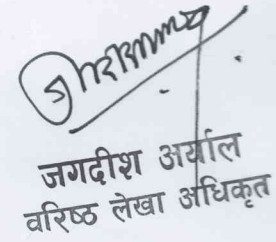 जगदीश अर्याल
वरिष्ठ लेखा अधिकृत